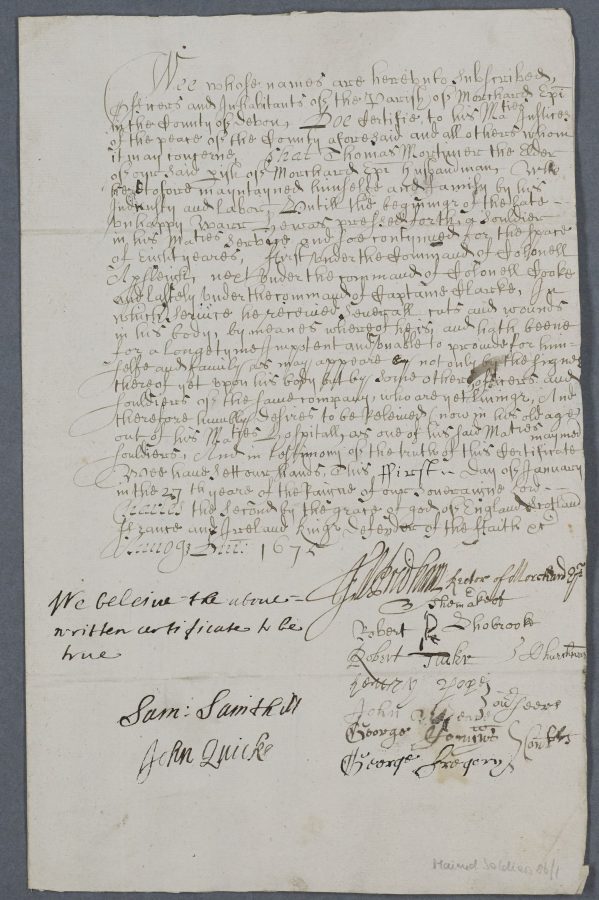 Wee whose names are hereunto Subscribed,
Officers and Inhabitants of the Parish of Morchard Epi
in the County of Devon, Doe Certifie to his Maties Justices
of the peace of the County aforesaid and all others whom
it may concerne, That Thomas Mortimer the Elder
of our said pish of Morchard Epi Husbandman,
heretofore mayntayned himselfe and family by his
Industry and Labor, Untill the beginnige of the late
unhappy Warr Hewas pressed forthig souldier
in his Maties Service and soe contynued for the space
of Eight yeares, first under the Command of Collonell
next under the command of Collonell Cooke
and lastly under the command of Captaine Clarke, In
which Service he received severall cuts and wounds
in his body, by meanes whereof he is, and hath beene
for a longe tyme Impotent and unable to provide for him
selfe and family as may appeare not only by the signes
thereof yet upon his body but by some other officers and
souldiers of the same company, who are yet livinge, And
therefore humbly desires to be Releived now in his old age
out of his Maties Hospitall, as one of his said Maties maymed
souldiers, And in testimony of the truth of this Certificate
Wee have Sett our hands This First Day of January
in the 27th yeare of the raigne of our Soveraigne Lord
Charles the Second by the grace of god of England Scotland
France and Ireland Kinge Defender of the Faith &c
Annoq Dni: 1675
Rector of Morchard Epi
We beleive the above
written certificate to be
true
the make of
Robert Shobrooke
Robert Tucker
Henery Pope
John
George
George Gregory
Sam: Sainthill
John Quicke
Maimed Soldiers 26/1